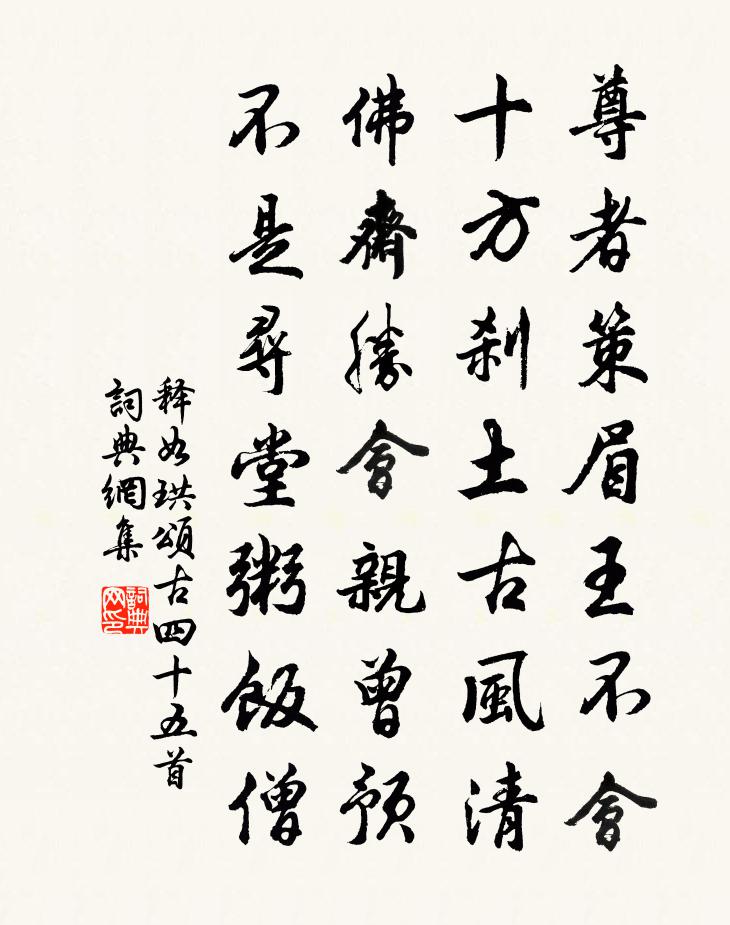 尊者策眉王不會
十方刹土古風清
佛齋勝會親曾預
不是尋堂粥飯僧
释如珙頌古四十五首
詞典網集
詞典网印